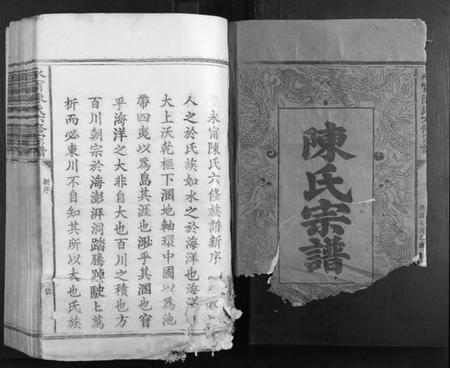 永甯陳氏六修族譜新序
人之於氏族如水之於海洋也海洋
大上沃乾樞下涸地軸環中國以爲池
帶四夷以爲島其涯也渺乎其涸也窅
乎海洋之大非自大也百川之積也方
百川朝宗於海澎湃洞踏騰踔駛上萬
析而必東川不自知其所以大也氏族
新序
陳氏宗譜